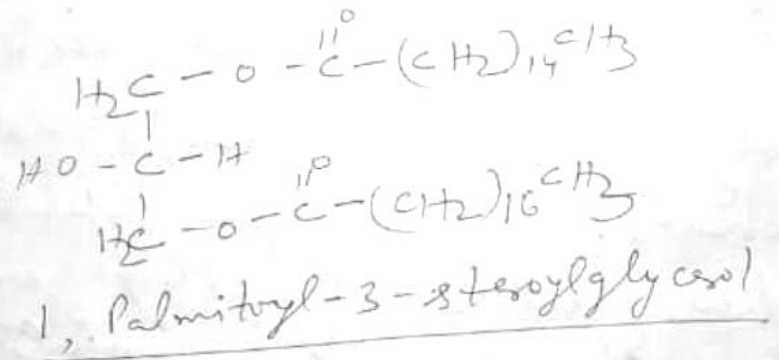 O
H2C - O - C - (CH2)14 CH3
HO - C - H
O
H2C - O - C - (CH2)16 CH3
1, Palmitoyl-3-steroylglycerol